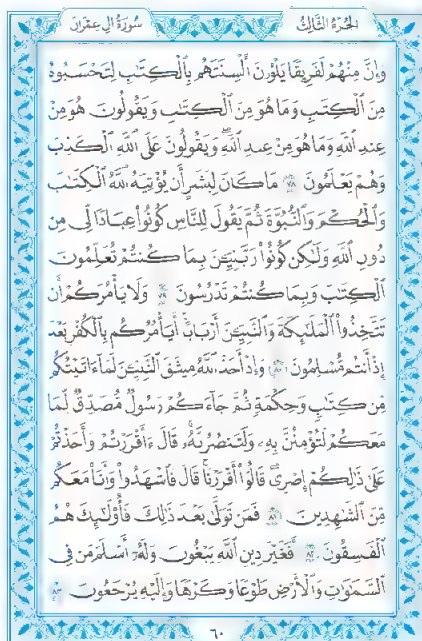 سُورَةُ آلِ عِمْرَانَ الجُزْءُ الثَّالِثُ
وَإِنَّ مِنْهُمْ لَفَرِيقًا يَلْوُۥنَ أَلْسِنَتَهُم بِالْكِتَٰبِ لِتَحْسَبُوهُ
مِنَ الْكِتَٰبِ وَمَا هُوَ مِنَ الْكِتَٰبِ وَيَقُولُونَ هُوَ مِنْ
عِندِ اللَّهِ وَمَا هُوَ مِنْ عِندِ اللَّهِ وَيَقُولُونَ عَلَى اللَّهِ الْكَذِبَ
وَهُمْ يَعْلَمُونَ ٧٨ مَا كَانَ لِبَشَرٍ أَن يُؤْتِيَهُ اللَّهُ الْكِتَٰبَ
وَالْحُكْمَ وَالنُّبُوَّةَ ثُمَّ يَقُولَ لِلنَّاسِ كُونُوا۟ عِبَادًا لِّي مِن
دُونِ اللَّهِ وَلَٰكِن كُونُوا۟ رَبَّٰنِيِّۧنَ بِمَا كُنتُمْ تُعَلِّمُونَ
الْكِتَٰبَ وَبِمَا كُنتُمْ تَدْرُسُونَ ٧٩ وَلَا يَأْمُرَكُمْ أَن
تَتَّخِذُوا۟ الْمَلَٰٓئِكَةَ وَالنَّبِيِّۧنَ أَرْبَابًا أَيَأْمُرُكُم بِالْكُفْرِ بَعْدَ
إِذْ أَنتُم مُّسْلِمُونَ ٨٠ وَإِذْ أَخَذَ اللَّهُ مِيثَٰقَ النَّبِيِّۧنَ لَمَآ ءَاتَيْتُكُم
مِّن كِتَٰبٍ وَحِكْمَةٍ ثُمَّ جَآءَكُمْ رَسُولٌ مُّصَدِّقٌ لِّمَا
مَعَكُمْ لَتُؤْمِنُنَّ بِهِۦ وَلَتَنصُرُنَّهُۥ قَالَ ءَأَقْرَرْتُمْ وَأَخَذْتُمْ
عَلَىٰ ذَٰلِكُمْ إِصْرِي قَالُوٓا۟ أَقْرَرْنَا قَالَ فَاشْهَدُوا۟ وَأَنَا۠ مَعَكُم
مِّنَ الشَّٰهِدِينَ ٨١ فَمَن تَوَلَّىٰ بَعْدَ ذَٰلِكَ فَأُو۟لَٰٓئِكَ هُمُ
الْفَٰسِقُونَ ٨٢ أَفَغَيْرَ دِينِ اللَّهِ يَبْغُونَ وَلَهُۥٓ أَسْلَمَ مَن فِي
السَّمَٰوَٰتِ وَالْأَرْضِ طَوْعًا وَكَرْهًا وَإِلَيْهِ يُرْجَعُونَ ٨٣
٦٠